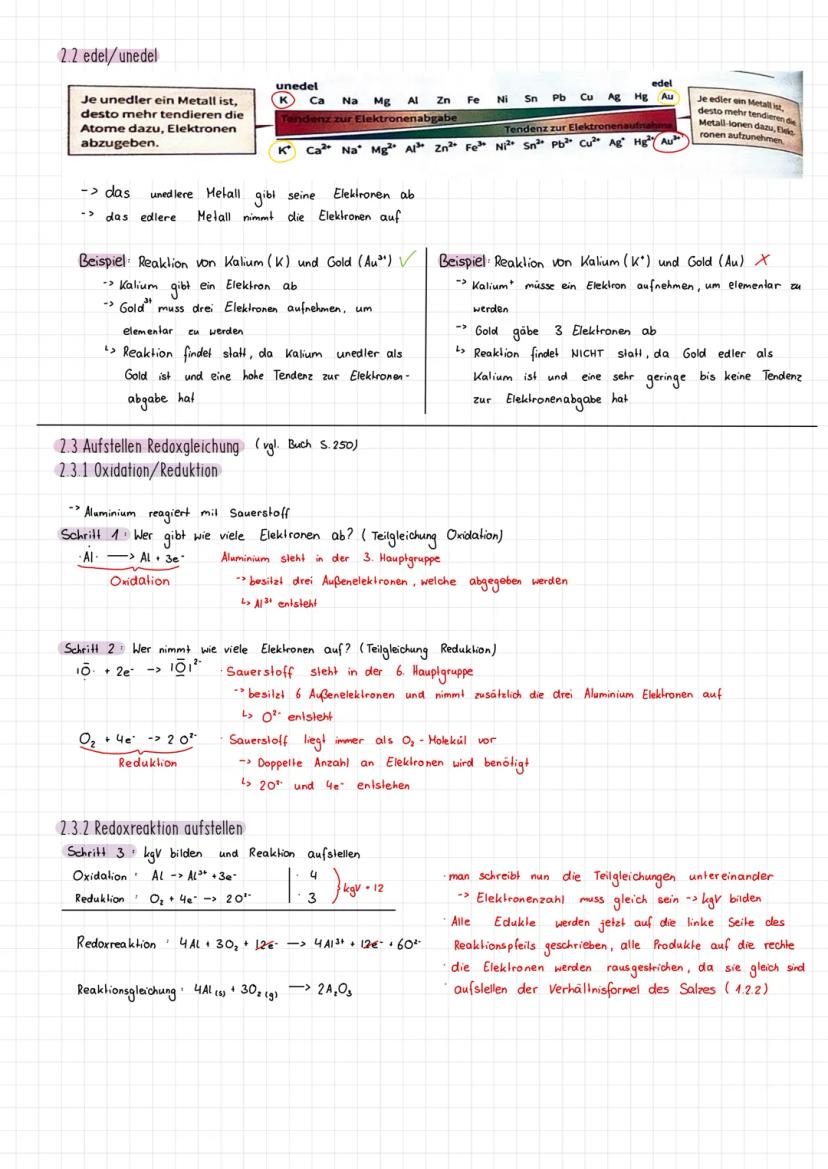 2.2 edel/unedel
Je unedler ein Metall ist,
desto mehr tendieren die
Atome dazu, Elektronen
abzugeben.
unedel
edel
K Ca Na Mg Al Zn Fe Ni Sn Pb Cu Ag Hg Au
Tendenz zur Elektronenabgabe
Tendenz zur Elektronenaufnahme
K⁺ Ca²⁺ Na⁺ Mg²⁺ Al³⁺ Zn²⁺ Fe³⁺ Ni²⁺ Sn²⁺ Pb²⁺ Cu²⁺ Ag⁺ Hg²⁺ Au³⁺
Je edler ein Metall ist,
desto mehr tendieren die
Metall-Ionen dazu, Elekt-
ronen aufzunehmen.
-> das unedlere Metall gibt seine Elektronen ab
-> das edlere Metall nimmt die Elektronen auf
Beispiel: Reaktion von Kalium (K) und Gold (Au³⁺) ✓
-> Kalium gibt ein Elektron ab
-> Gold³⁺ muss drei Elektronen aufnehmen, um
elementar zu werden
↳ Reaktion findet statt, da Kalium unedler als
Gold ist und eine hohe Tendenz zur Elektronen-
abgabe hat
Beispiel: Reaktion von Kalium (K⁺) und Gold (Au) X
-> Kalium⁺ müsse ein Elektron aufnehmen, um elementar zu
werden
-> Gold gäbe 3 Elektronen ab
↳ Reaktion findet NICHT statt, da Gold edler als
Kalium ist und eine sehr geringe bis keine Tendenz
zur Elektronenabgabe hat
2.3 Aufstellen Redoxgleichung (vgl. Buch S.250)
2.3.1 Oxidation/Reduktion
-> Aluminium reagiert mit Sauerstoff
Schritt 1: Wer gibt wie viele Elektronen ab? (Teilgleichung Oxidation)
·Al· —> Al + 3e⁻
Oxidation
Aluminium steht in der 3. Hauptgruppe
-> besitzt drei Außenelektronen, welche abgegeben werden
↳ Al³⁺ entsteht
Schritt 2: Wer nimmt wie viele Elektronen auf? (Teilgleichung Reduktion)
|Ō· + 2e⁻ -> |Ō|²⁻
· Sauerstoff steht in der 6. Hauptgruppe
-> besitzt 6 Außenelektronen und nimmt zusätzlich die drei Aluminium Elektronen auf
↳ O²⁻ entsteht
O₂ + 4e⁻ -> 2 O²⁻
Reduktion
· Sauerstoff liegt immer als O₂ - Molekül vor
-> Doppelte Anzahl an Elektronen wird benötigt
↳ 2O²⁻ und 4e⁻ entstehen
2.3.2 Redoxreaktion aufstellen
Schritt 3: kgV bilden und Reaktion aufstellen
Oxidation: Al -> Al³⁺ +3e⁻ | · 4
Reduktion: O₂ + 4e⁻ -> 2O²⁻ | · 3
kgV = 12
Redoxreaktion: 4Al + 3O₂ + 12e⁻ —> 4Al³⁺ + 12e⁻ + 6O²⁻
Reaktionsgleichung: 4Al (s) + 3O₂ (g) —> 2A₂O₃
· man schreibt nun die Teilgleichungen untereinander
-> Elektronenzahl muss gleich sein -> kgV bilden
· Alle Edukte werden jetzt auf die linke Seite des
Reaktionspfeils geschrieben, alle Produkte auf die rechte
· die Elektronen werden rausgestrichen, da sie gleich sind
· aufstellen der Verhältnisformel des Salzes (1.2.2)